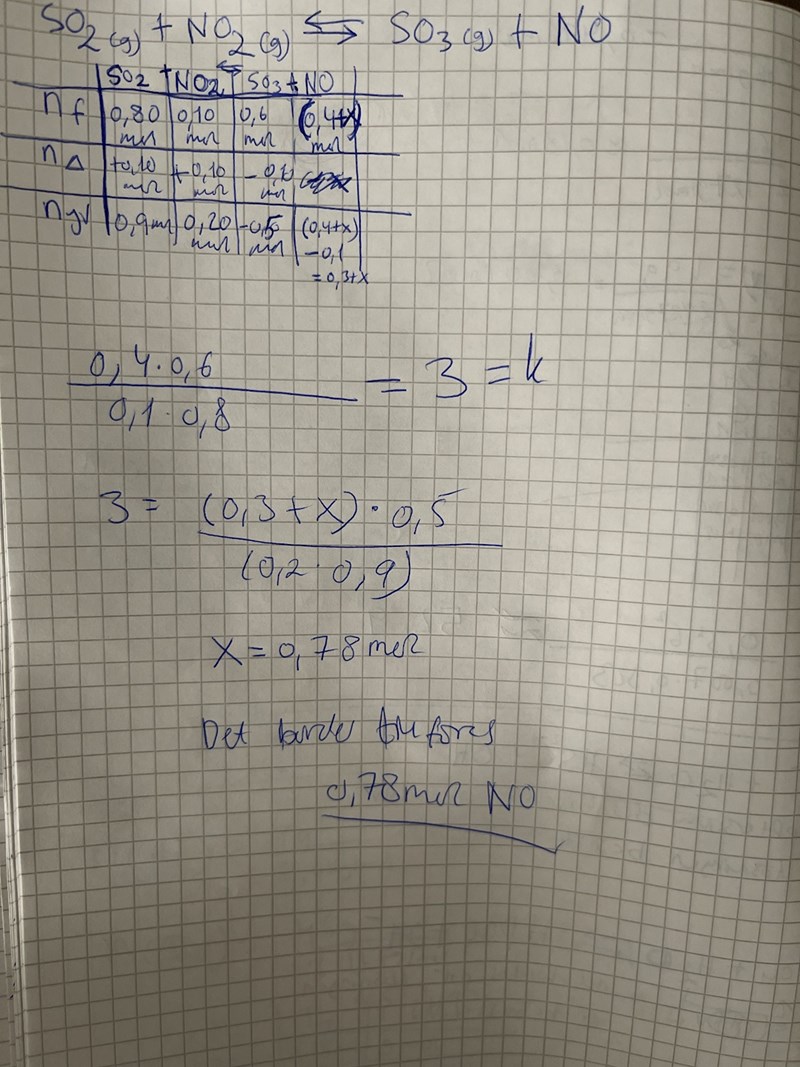 SO2(g) + NO2(g) ⇌ SO3(g) + NO
SO2 + NO2 ⇌ SO3 + NO
nf 0,80 mol 0,10 mol 0,6 mol (0,4+x) mol
nΔ +0,10 mol +0,10 mol -0,10 mol
0,9 mol 0,20 mol 0,5 mol (0,4+x)
-0,1
=0,3+x
0,4·0,6
= 3 = k
0,1·0,8
3 = (0,3+x)·0,5
(0,2·0,9)
x = 0,78 mol
Det tillföras
0,78 mol NO